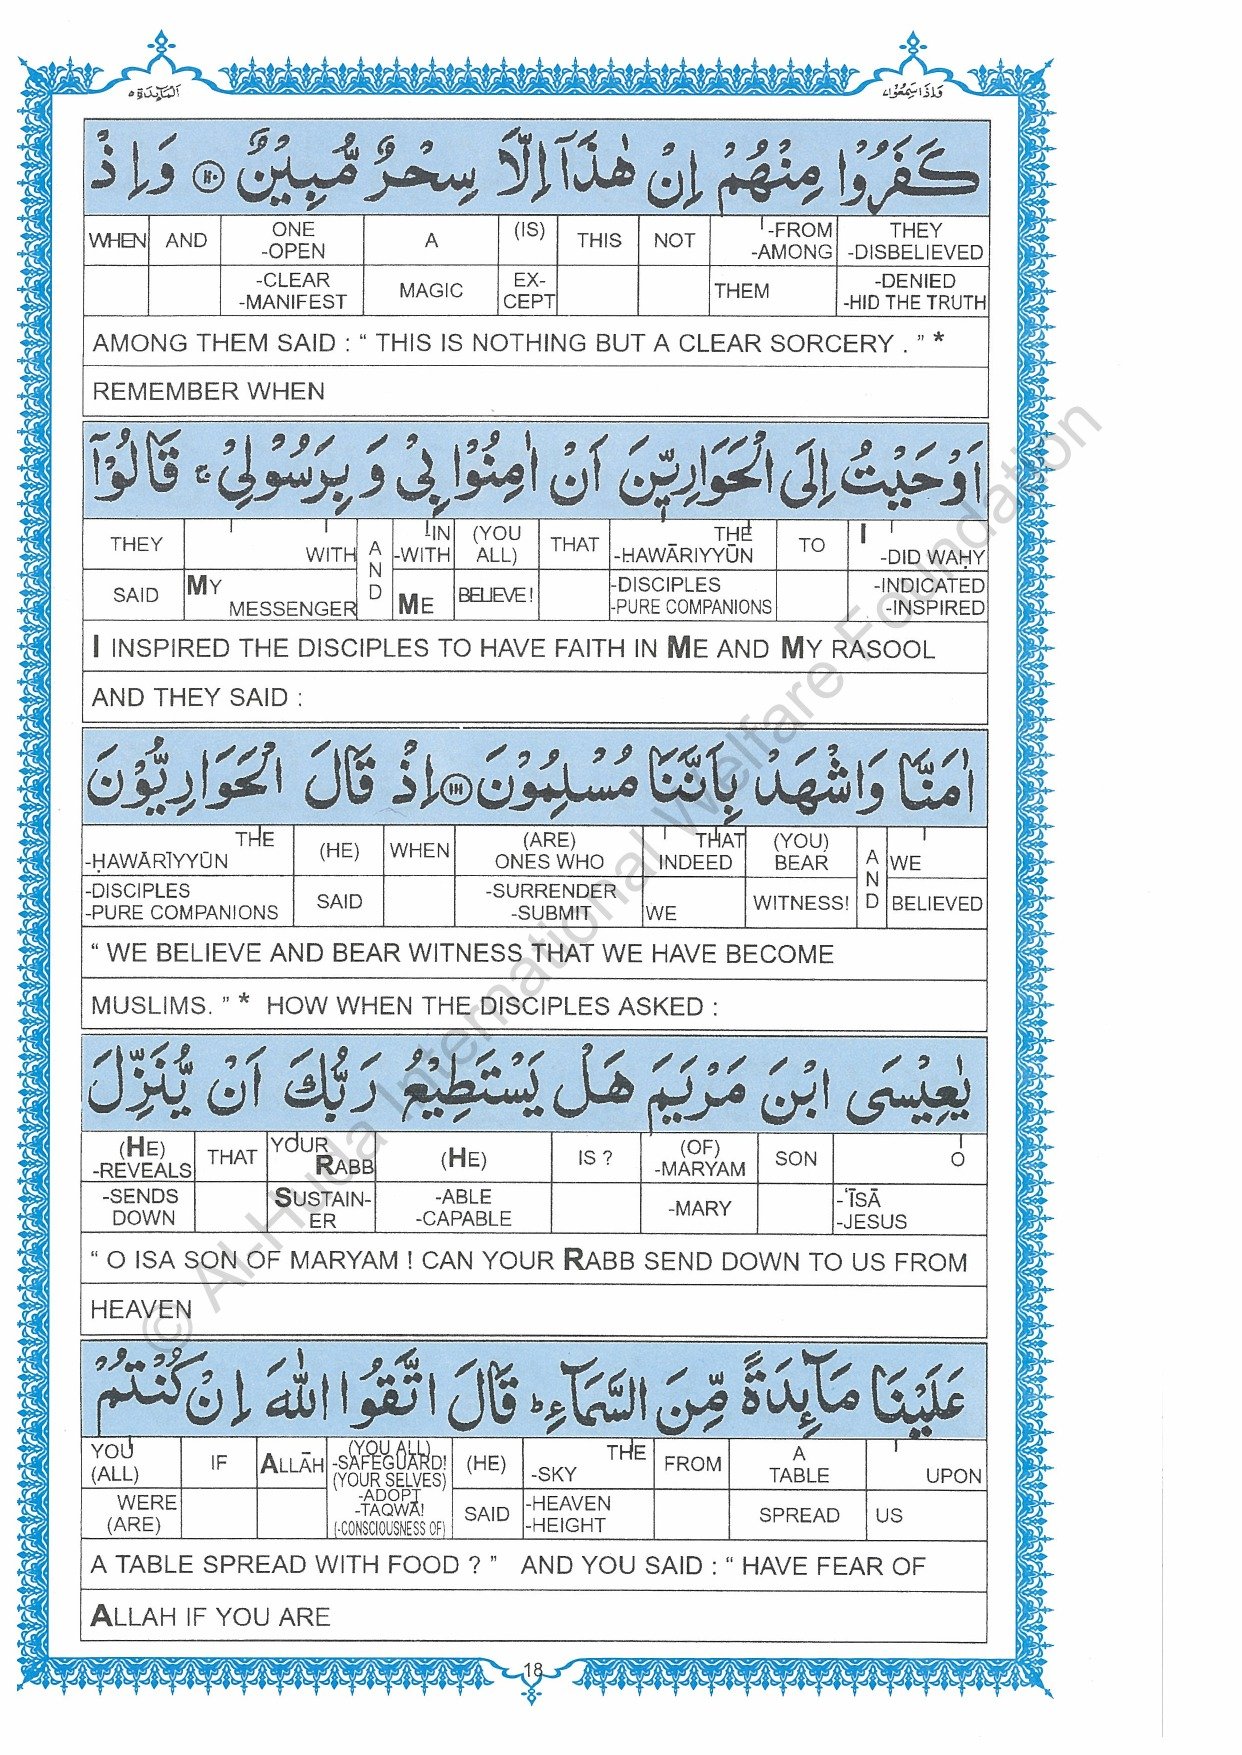 المآئدة ٥
واذا سمعوا ٧
كَفَرُوْا مِنْهُمْ اِنْ هٰذَآ اِلَّا سِحْرٌ مُّبِيْنٌ ۝١١٠ وَاِذْ
WHEN AND ONE -OPEN A (IS) THIS NOT -FROM -AMONG THEY -DISBELIEVED
-CLEAR -MANIFEST MAGIC EX-CEPT THEM -DENIED -HID THE TRUTH
AMONG THEM SAID : “ THIS IS NOTHING BUT A CLEAR SORCERY . ” *
REMEMBER WHEN
اَوْحَيْتُ اِلَى الْحَوَارِيّٖنَ اَنْ اٰمِنُوْا بِيْ وَ بِرَسُوْلِيْ ۚ قَالُوْٓا
THEY WITH AND -IN -WITH (YOU ALL) THAT THE -HAWĀRIYYŪN TO I -DID WAḤY
SAID MY MESSENGER ME BELIEVE! -DISCIPLES -PURE COMPANIONS -INDICATED -INSPIRED
I INSPIRED THE DISCIPLES TO HAVE FAITH IN ME AND MY RASOOL
AND THEY SAID :
اٰمَنَّا وَاشْهَدْ بِاَنَّنَا مُسْلِمُوْنَ ۝١١١ اِذْ قَالَ الْحَوَارِيُّوْنَ
THE -ḤAWĀRĪYYŪN (HE) WHEN (ARE) ONES WHO THAT INDEED (YOU) BEAR AND WE
-DISCIPLES -PURE COMPANIONS SAID -SURRENDER -SUBMIT WE WITNESS! BELIEVED
“ WE BELIEVE AND BEAR WITNESS THAT WE HAVE BECOME
MUSLIMS. ” * HOW WHEN THE DISCIPLES ASKED :
يٰعِيْسَى ابْنَ مَرْيَمَ هَلْ يَسْتَطِيْعُ رَبُّكَ اَنْ يُّنَزِّلَ
(HE) -REVEALS THAT YOUR RABB (HE) IS ? (OF) -MARYAM SON O
-SENDS DOWN SUSTAIN-ER -ABLE -CAPABLE -MARY -‘ĪSĀ -JESUS
“ O ISA SON OF MARYAM ! CAN YOUR RABB SEND DOWN TO US FROM
HEAVEN
عَلَيْنَا مَآئِدَةً مِّنَ السَّمَآءِ ؕ قَالَ اتَّقُوا اللّٰهَ اِنْ كُنْتُمْ
YOU (ALL) IF ALLĀH (YOU ALL) -SAFEGUARD! (YOUR SELVES) (HE) THE -SKY FROM A TABLE UPON
WERE (ARE) -ADOPT -TAQWĀ! (-CONSCIOUSNESS OF) SAID -HEAVEN -HEIGHT SPREAD US
A TABLE SPREAD WITH FOOD ? ” AND YOU SAID : “ HAVE FEAR OF
ALLAH IF YOU ARE
18
© Al-Huda International Welfare Foundation